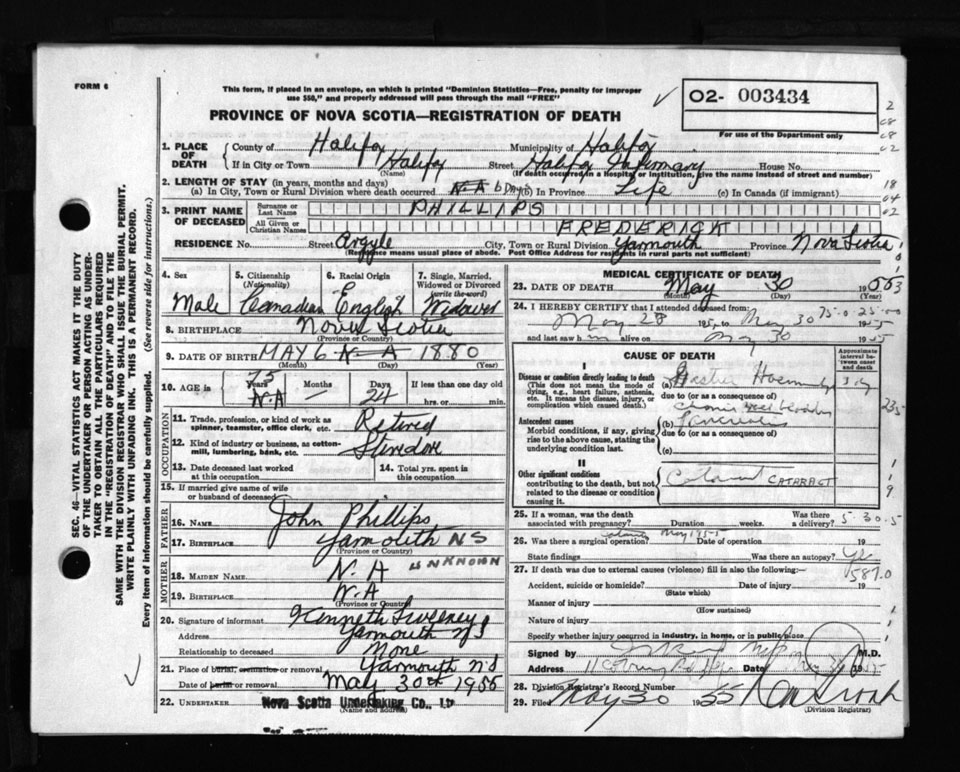 FORM 6
This form, if placed in an envelope, on which is printed "Dominion Statistics—Free, penalty for improper
use $50," and properly addressed will pass through the mail "FREE"
PROVINCE OF NOVA SCOTIA—REGISTRATION OF DEATH
O2- 003434
For use of the Department only
2
C8
C8
02
18
04
02
1. PLACE OF DEATH
County of Halifax Municipality of Halifax
If in City or Town Halifax Street Halifax Infirmary House No.
(Name) (If death occurred in a Hospital or Institution, give the name instead of street and number)
2. LENGTH OF STAY (in years, months and days)
(a) In City, Town or Rural Division where death occurred N-A 6 Days (b) In Province Life (c) In Canada (if immigrant)
3. PRINT NAME OF DECEASED
Surname or Last Name PHILLIPS
All Given or Christian Names FREDERICK
RESIDENCE No. Street Argyle City, Town or Rural Division Yarmouth Province Nova Scotia
(Residence means usual place of abode. Post Office Address for residents in rural parts not sufficient)
4. Sex Male
5. Citizenship (Nationality) Canadian
6. Racial Origin English
7. Single, Married, Widowed or Divorced (write the word) Widower
8. BIRTHPLACE Nova Scotia
(Province or Country)
9. DATE OF BIRTH MAY 6 N-A 1880
(Month) (Day) (Year)
10. AGE is 75 Years N.A Months Days 24 If less than one day old
hrs. or min.
OCCUPATION
11. Trade, profession, or kind of work as spinner, teamster, office clerk, etc. Retired
12. Kind of industry or business, as cotton-mill, lumbering, bank, etc. Stevedore
13. Date deceased last worked at this occupation
14. Total yrs. spent in this occupation
15. If married give name of wife or husband of deceased
FATHER
16. NAME John Phillips
17. BIRTHPLACE Yarmouth NS
(Province or Country)
MOTHER
18. MAIDEN NAME N.A UNKNOWN
19. BIRTHPLACE N.A
(Province or Country)
20. Signature of informant Kenneth Sweeney
Address Yarmouth NS
Relationship to deceased None
21. Place of burial, cremation or removal Yarmouth N.S
Date of burial or removal May 30th 1955
22. UNDERTAKER Nova Scotia Undertaking Co., Lt
(Name and address)
MEDICAL CERTIFICATE OF DEATH
23. DATE OF DEATH May 30 1955
(Month) (Day) (Year)
24. I HEREBY CERTIFY that I attended deceased from
May 28 195 to May 30 1955
75.0 25.00
and last saw him alive on May 30 1955
CAUSE OF DEATH
Approximate interval between onset and death
I
Disease or condition directly leading to death
(This does not mean the mode of dying, e.g., heart failure, asthenia, etc. It means the disease, injury, or complication which caused death.)
(a)
due to (or as a consequence of)
Antecedent causes
Morbid conditions, if any, giving rise to the above cause, stating the underlying condition last.
(b)
due to (or as a consequence of)
(c)
II
Other significant conditions
contributing to the death, but not related to the disease or condition causing it.
CATARACT
25. If a woman, was the death associated with pregnancy? Duration weeks. Was there a delivery?
5-30.5
26. Was there a surgical operation? May 1955 Date of operation 19
State findings Was there an autopsy?
587.0
27. If death was due to external causes (violence) fill in also the following:—
Accident, suicide or homicide? Date of injury 19
(State which)
Manner of injury
(How sustained)
Nature of injury
Specify whether injury occurred in industry, in home, or in public place
Signed by M.D.
Address Date 1955
28. Division Registrar's Record Number
29. Filed May 30 1955
(Division Registrar)
SEC. 46—VITAL STATISTICS ACT MAKES IT THE DUTY
OF THE UNDERTAKER OR PERSON ACTING AS UNDER-
TAKER TO OBTAIN ALL THE PARTICULARS REQUIRED
IN THE "REGISTRATION OF DEATH" AND TO FILE THE
SAME WITH THE DIVISION REGISTRAR WHO SHALL ISSUE THE BURIAL PERMIT.
WRITE PLAINLY WITH UNFADING INK. THIS IS A PERMANENT RECORD.
Every item of information should be carefully supplied. (See reverse side for instructions.)